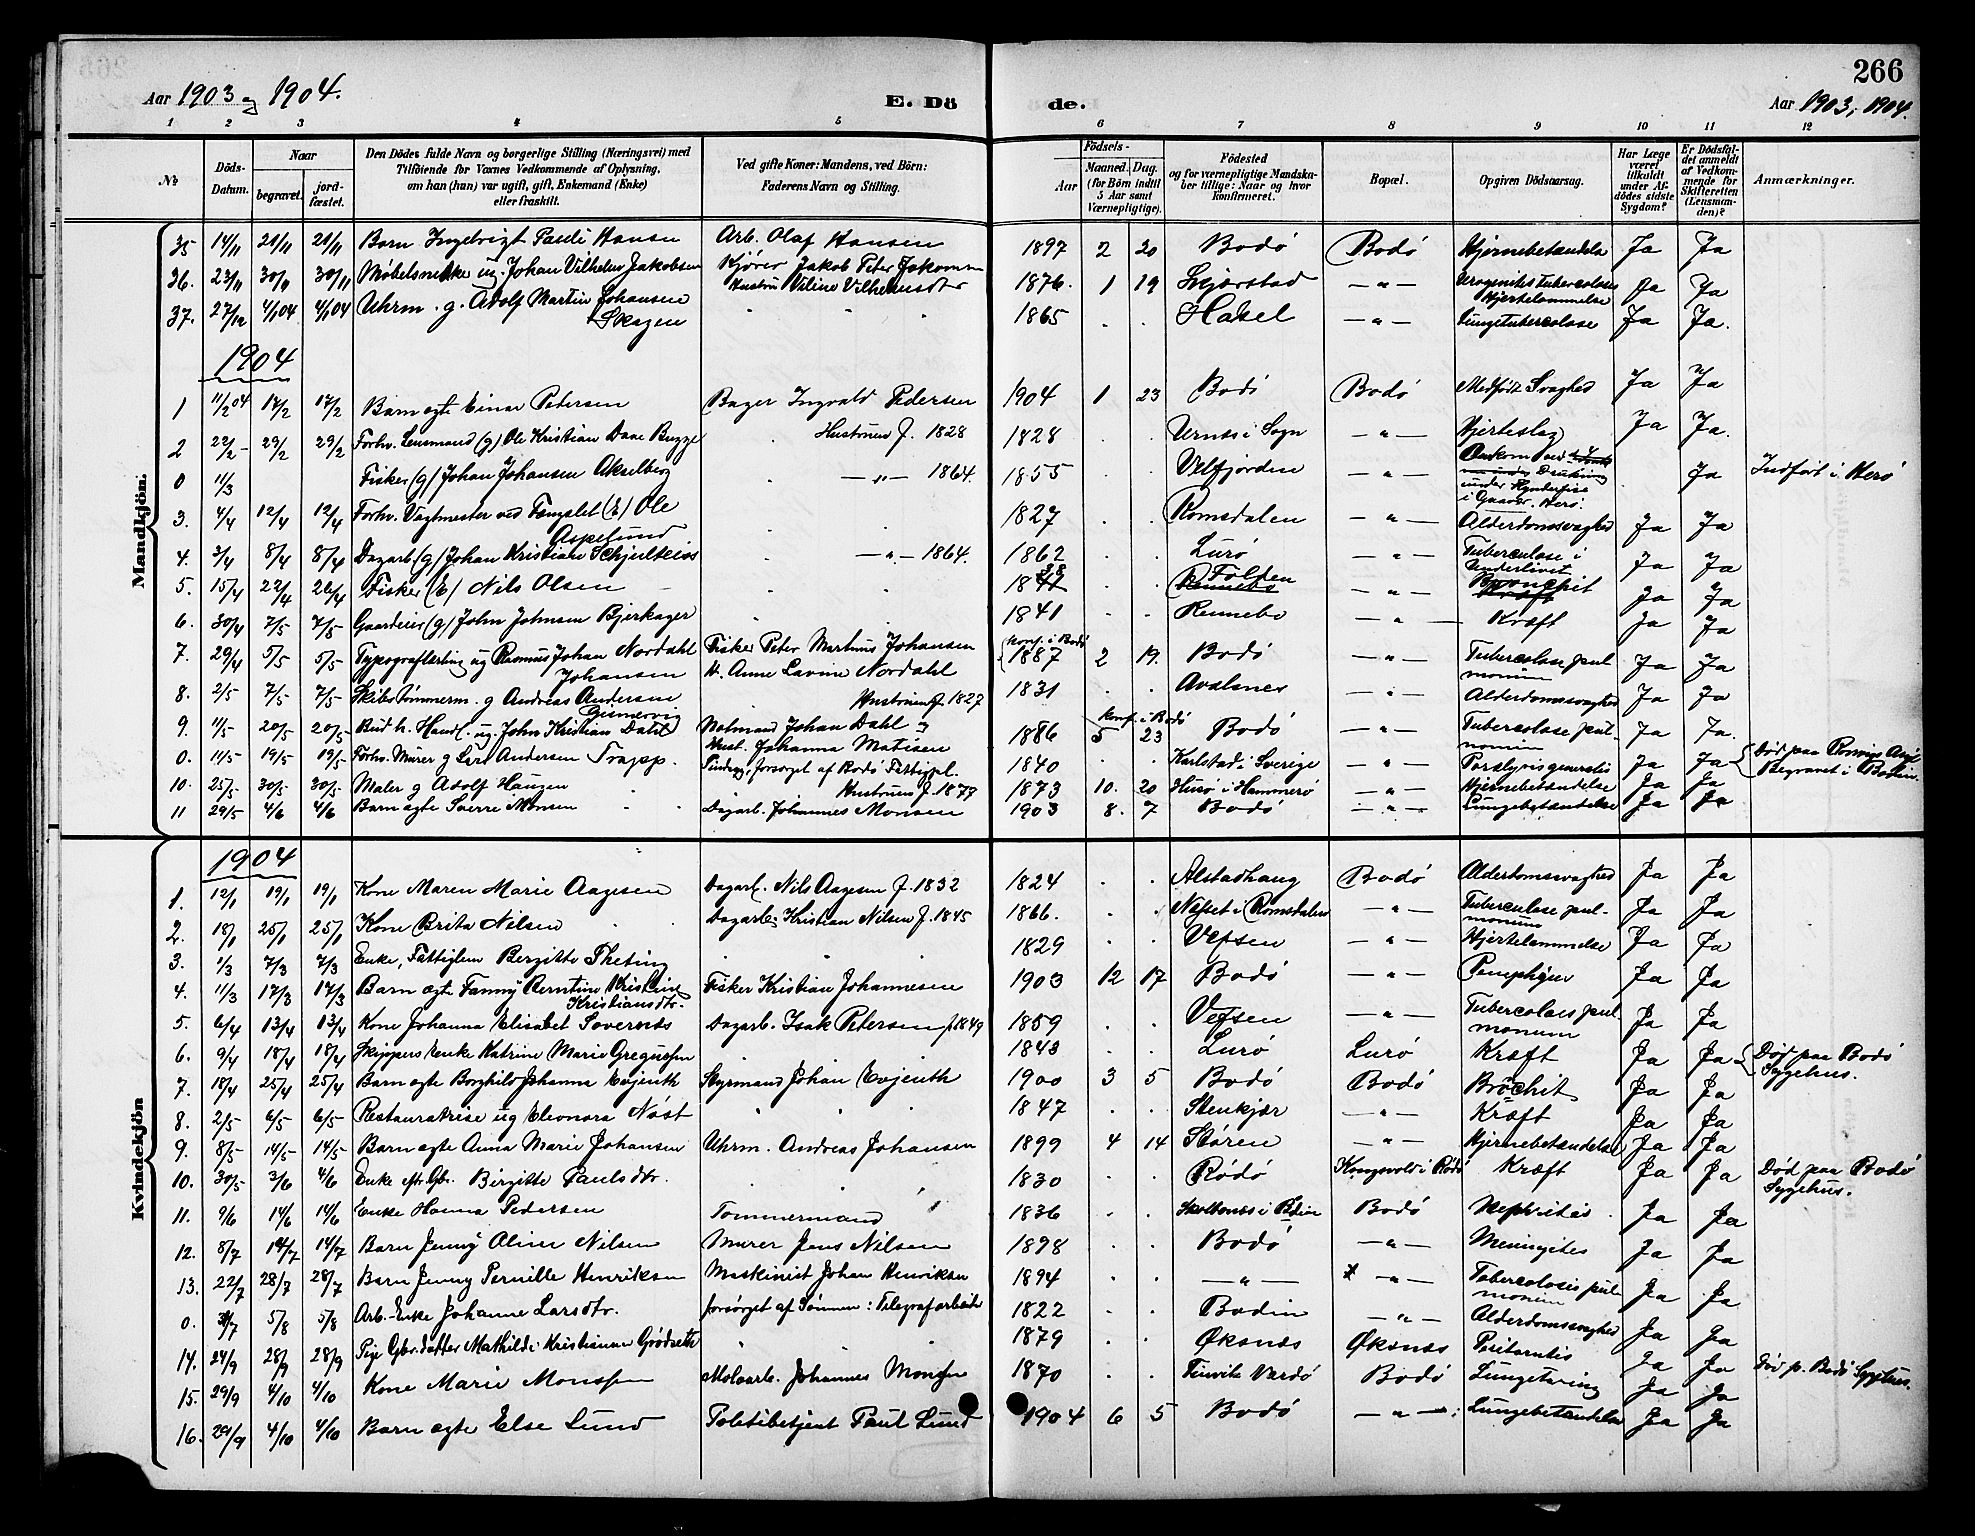 266
Aar 1903 og 1904.
E. Döde.
Aar 1903, 1904.
1 2 3 4 5 6 7 8 9 10 11 12
№
Döds-Datum.
Naar
begravet.
jordfæstet.
Den Dödes fulde Navn og borgerlige Stilling (Næringsvei) med
Tilföiende for Voxnes Vedkommende af Oplysning,
om han (hun) var ugift, gift, Enkemand (Enke)
eller fraskilt.
Ved gifte Koner: Mandens, ved Börn:
Faderens Navn og Stilling.
Födsels-
Aar
Maaned. Dag.
(for Börn indtil
5 Aar samt
Værnepligtige).
Födested
og for værnepligtige Mandskaber tillige: Naar og hvor
konfirmeret.
Bopæl.
Opgiven Dödsaarsag.
Har Læge
været
tilkaldt
under Afdödes sidste
Sygdom?
Er Dödsfaldet anmeldt
af Vedkommende for
Skifteretten
(Lensmanden)?
Anmærkninger.
Mandkjön.
35 14/11 21/11 21/11 Barn Ingebrigt Pauli Hansen Arb. Olaf Hansen 1897 2 20 Bodö Bodö Hjernebetændelse Ja Ja
36. 23/11 30/11 30/11 Möbelsnekker ug. Johan Vilhelm Jakobsen Kjörer Jakob Peter Jakobsen Hustru Viline Vilhelmsdtr 1876. 1 19 — " — Urogenitstuberculoses Hjertelammelse Ja Ja
37. 27/12 4/1 04 4/1 04 Uhrm. g. Adolf Martin Johansen Skagen 1865 . . — " — Lungetuberculose Ja Ja.
1904
1 11/2 04 17/2 17/2 Barn ægte Einar Petersen Bager Ingvald Pedersen 1904 1 23 Bodö Bodö Medfödt Svaghed Ja Ja
2 22/2 29/2 29/2 Forhv. Lensmand (g) Ole Kristian Daae Bugge Hustruen f. 1828 1828 . . Urnes i Sogn — " — Hjerteslag Ja Ja.
0 11/3 Fisker (g) Johan Johansen Akselberg — " — 1864. 1855 . . Velfjorden — " — Omkom ved Drukning under i Herö. Ja Indfört i Herö
3. 4/4 12/4 12/4 Forhv. Vagtmester ved Fængslet (E) Ole Aspelund 1827 . . Romsdalen — " — Alderdomssvaghed Ja Ja
4. 3/4 8/4 8/4 Dagarb (g) Johan Kristian — " — 1864. 1862 . . Lurö — " — Tuberculose i Underlivet Ja Ja
5. 15/4 22/4 22/4 Fisker (E) Nils Olsen 1838 . . Folden — " — Bronchit Ja Ja
6. 30/4 7/5 7/5 Gaardeier (g) John Johnsen Bjerkager 1841 . . Rennebo — " — Kræft Ja Ja
7. 29/4 5/5 5/5 Typograflærling ug Rasmus Johan Nordahl Johansen Fisker Peter Martinus Johansen H. Anne Lavine Nordahl konf. i Bodö 1887 2 19. Bodö — " — Tuberculose pulmonum Ja Ja
8. 2/5 7/5 7/5 Skibstömmerm. g Andreas Andersen Gismervig Hustruen f. 1827 1831 . . Avalsnes — " — Alderdomssvaghed Ja Ja
9. 11/5 20/5 20/5 Bud h. Handl. ug. John Kristian Dahl Notmand Johan Dahl og Hust. Johanna Matisen konf. i Bodö 1886 5 23 Bodö — " — Tuberculose pulmonum Ja Ja.
0. 11/5 19/5 19/5 Forhv. Murer g Lars Andersen Trapp. forsörget af Bodö Fattigpl. 1840 . . Karlstad i Sverige — " — Paralysis generalis Ja Ja Död paa Rønvig Asyl Begravet i Bodin
10. 25/5 30/5 30/5 Maler g Adolf Haugen Hustruen f. 1879 1873 10. 20 Husö i Hammerö — " — Hjernebetændelse Ja Ja
11 29/5 4/6 4/6 Barn ægte Sverre Monsen Dagarb. Johannes Monsen 1903 8. 7 Bodö — " — Lungebetændelse Ja Ja
Kvindekjön
1904
1. 12/1 19/1 19/1 Kone Maren Marie Aagesen Dagarb. Nils Aagesen f. 1832 1824 . . Alstadhaug Bodö Alderdomssvaghed Ja Ja
2. 18/1 25/1 25/1 Kone Brita Nilsen Dagarb. Kristian Nilsen f. 1845 1866. . . Nesset i Romsdalen — " — Tuberculose pulmonum Ja Ja
3. 1/3 7/3 7/3 Enke, Fattiglem Bergitte Theting 1829 . . Vefsen — " — Hjertelammelse Ja Ja
4. 11/3 17/3 17/3 Barn ægte Fanny Berntine Kristine Kristiansdtr. Fisker Kristian Johannesen 1903 12 17 Bodö — " — Ja Ja
5. 6/4 13/4 13/4 Kone Johanna Elisabet Sovernes Dagarb. Isak Petersen f. 1849 1859 . . Vefsen — " — Tuberculoses pulmonum Ja Ja
6. 9/4 18/4 18/4 Skippers enke Katrine Marie Gregussen 1843 . . Lurö Lurö Kræft Ja Ja Död paa Bodö Sygehus.
7. 18/4 25/4 25/4 Barn ægte Borghild Johanna Evjenth Styrmand Johan Evjenth 1900 3 5 Bodö Bodö Ja Ja
8. 2/5 6/5 6/5 Restauratrise ug Eleonora Nöst 1847 . . Stenkjær — " — Kræft Ja Ja
9. 8/5 14/5 14/5 Barn ægte Anna Marie Johansen Uhrm. Andreas Johansen 1899 4 14 Stören — " — Hjernebetændelse Ja Ja
10. 30/5 3/6 4/6 Enke eftr. Gbr. Birgitte Paulsdtr. 1830 . . Rödö Kongsvold i Rödö Kræft Ja Ja Död paa Bodö Sygehus.
11. 9/6 14/6 14/6 Enke Hanna Pedersen Tömmermand 1836 . . i Bodin Bodö Nephritis Ja Ja
12. 8/7 14/7 14/7 Barn Jenny Aline Nilsen Murer Jens Nilsen 1898 . . Bodö — " — Meningites Ja Ja
13. 22/7 28/7 28/7 Barn Jenny Pernille Henriksen Maskinist Johan Henriksen 1894 . . — " — — " — Tuberculosis pulmonum Ja Ja
0. 31/7 5/8 5/8 Arb.-Enke Johanne Larsdtr. forsörget af Sönnen: Telegrafarbeider 1822 . . Bodin — " — Alderdomssvaghed Ja Ja
14. 24/9 28/9 28/9 Pige Gbr.datter Mathilde Kristianne 1879 . . Øksnes Øksnes Ja Ja Död p. Bodö Sygehus.
15. 29/9 4/10 4/10 Kone Marie Monssen Moloarb. Johannes Monssen 1870 . . Bodö Ja Ja
16. 29/9 4/10 4/10 Barn ægte Else Lund Politibetjent Paul Lund 1904 6 5 Bodö — " — Lungebetændelse Ja Ja